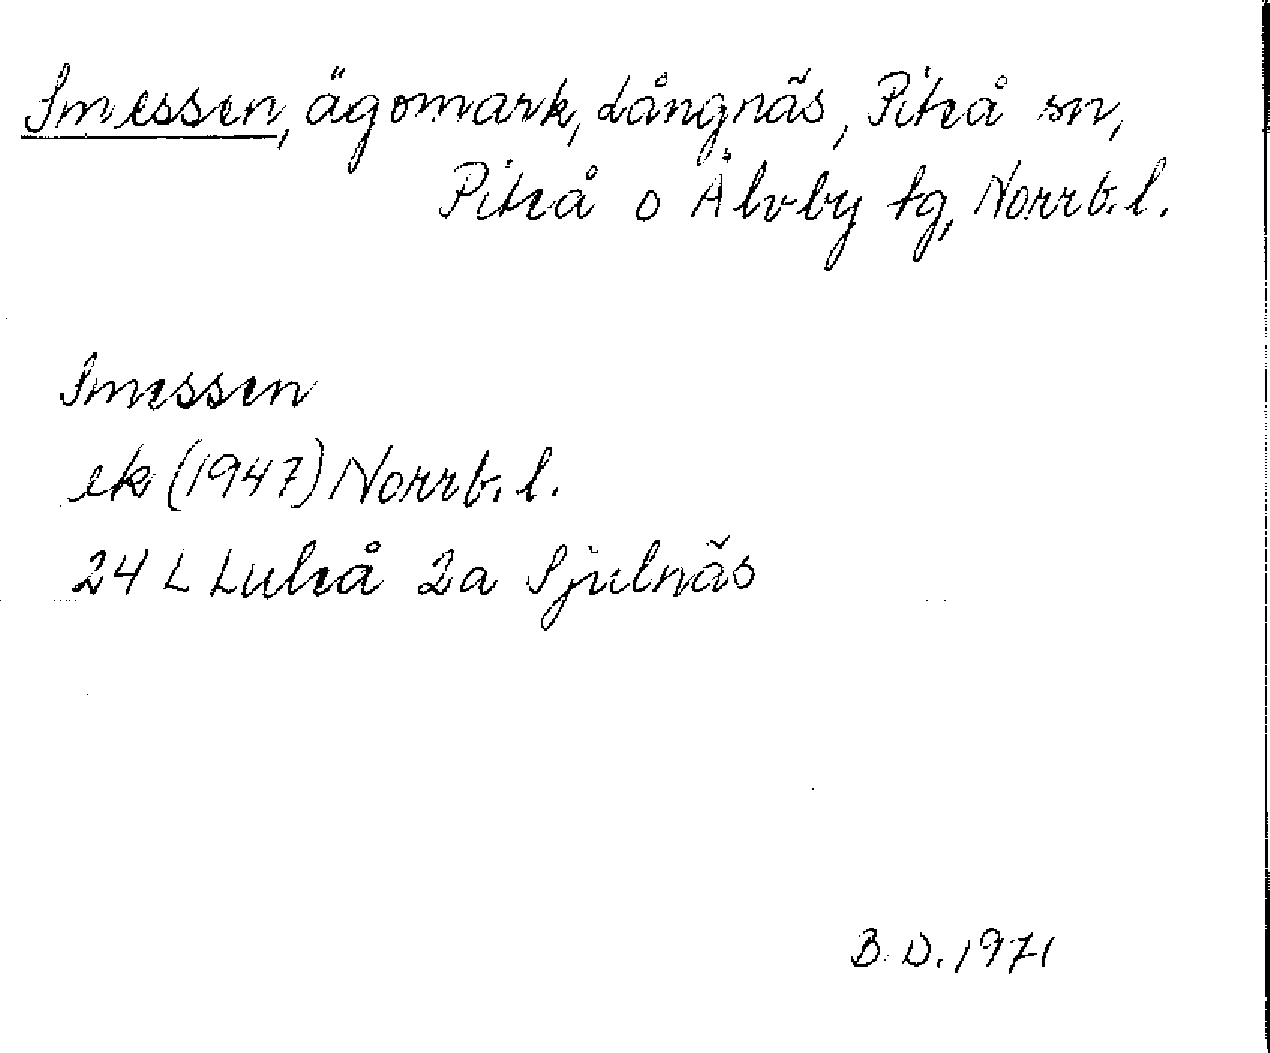 Smessen, ägomark, Långnäs, Piteå sn,
Piteå o Älvby tg, Norrb.l.
Smessen
ek (1947) Norrb.l.
24 L Luleå 2a Sjulnäs
B.D. 1971